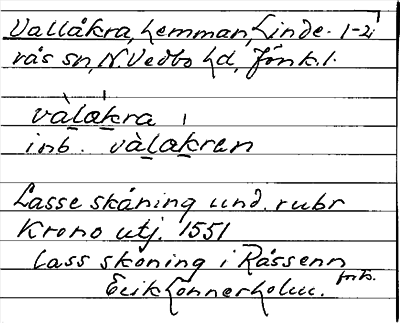 Vallåkra, hemman, Linde- 1-2
rås sn, N. Vedbo hd, Jönk. l.
vàlakra
inb. vàlakren
Lasse skåning und. rubr
Krono utj. 1551
Lass skoning i Råssenn
forts.
Erik Lönnerholm.